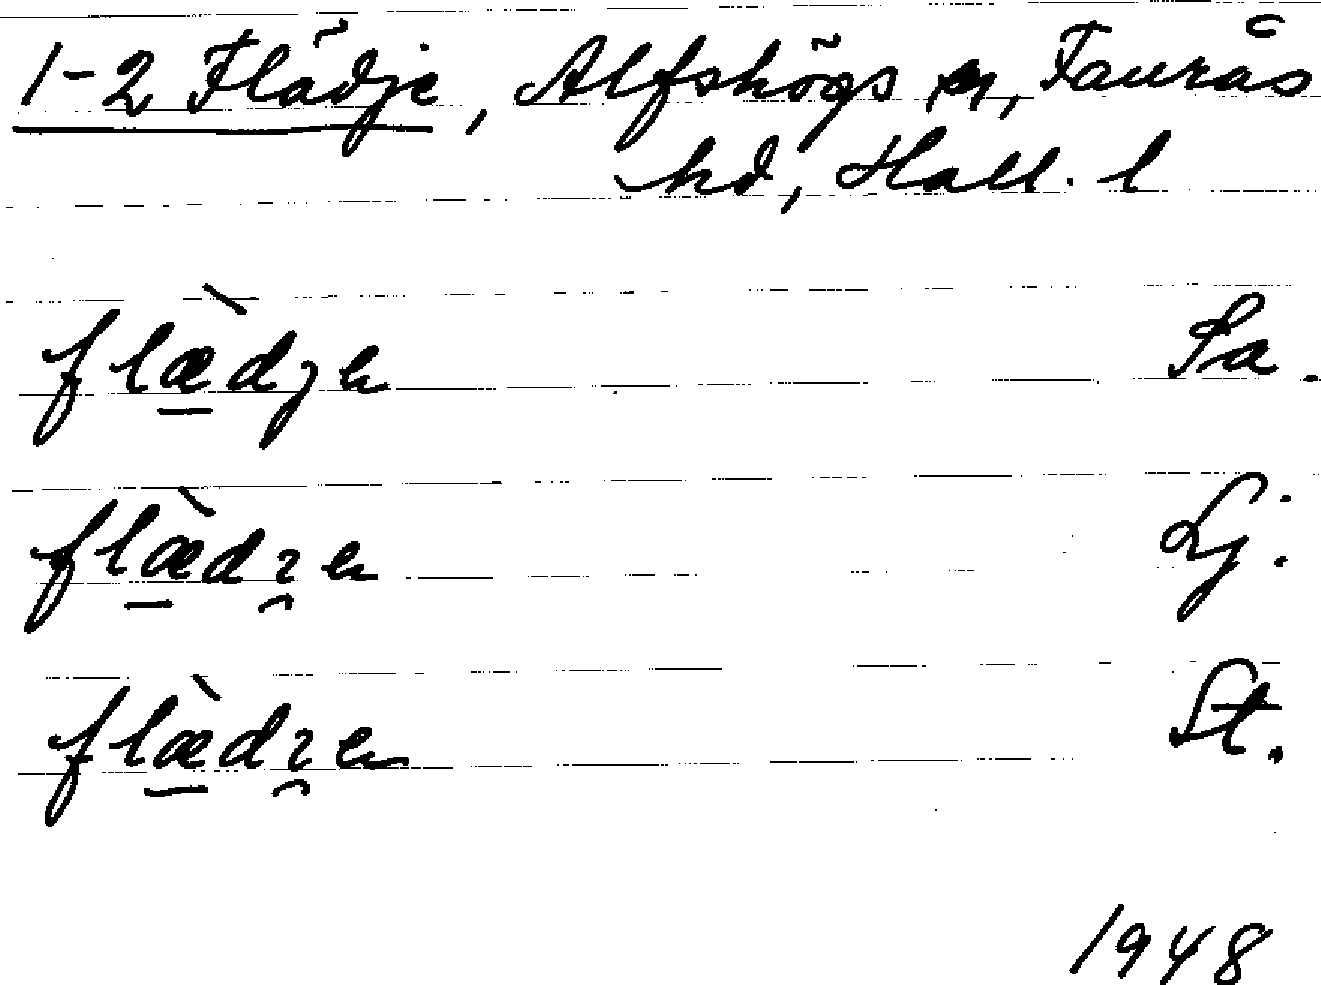 1-2 Flädje, Alfshögs sn, Faurås
hd, Hall. l
flæ̀djen Sa.
flæ̀dɿ̯en Lj.
flæ̀dɿ̯en St.
1948